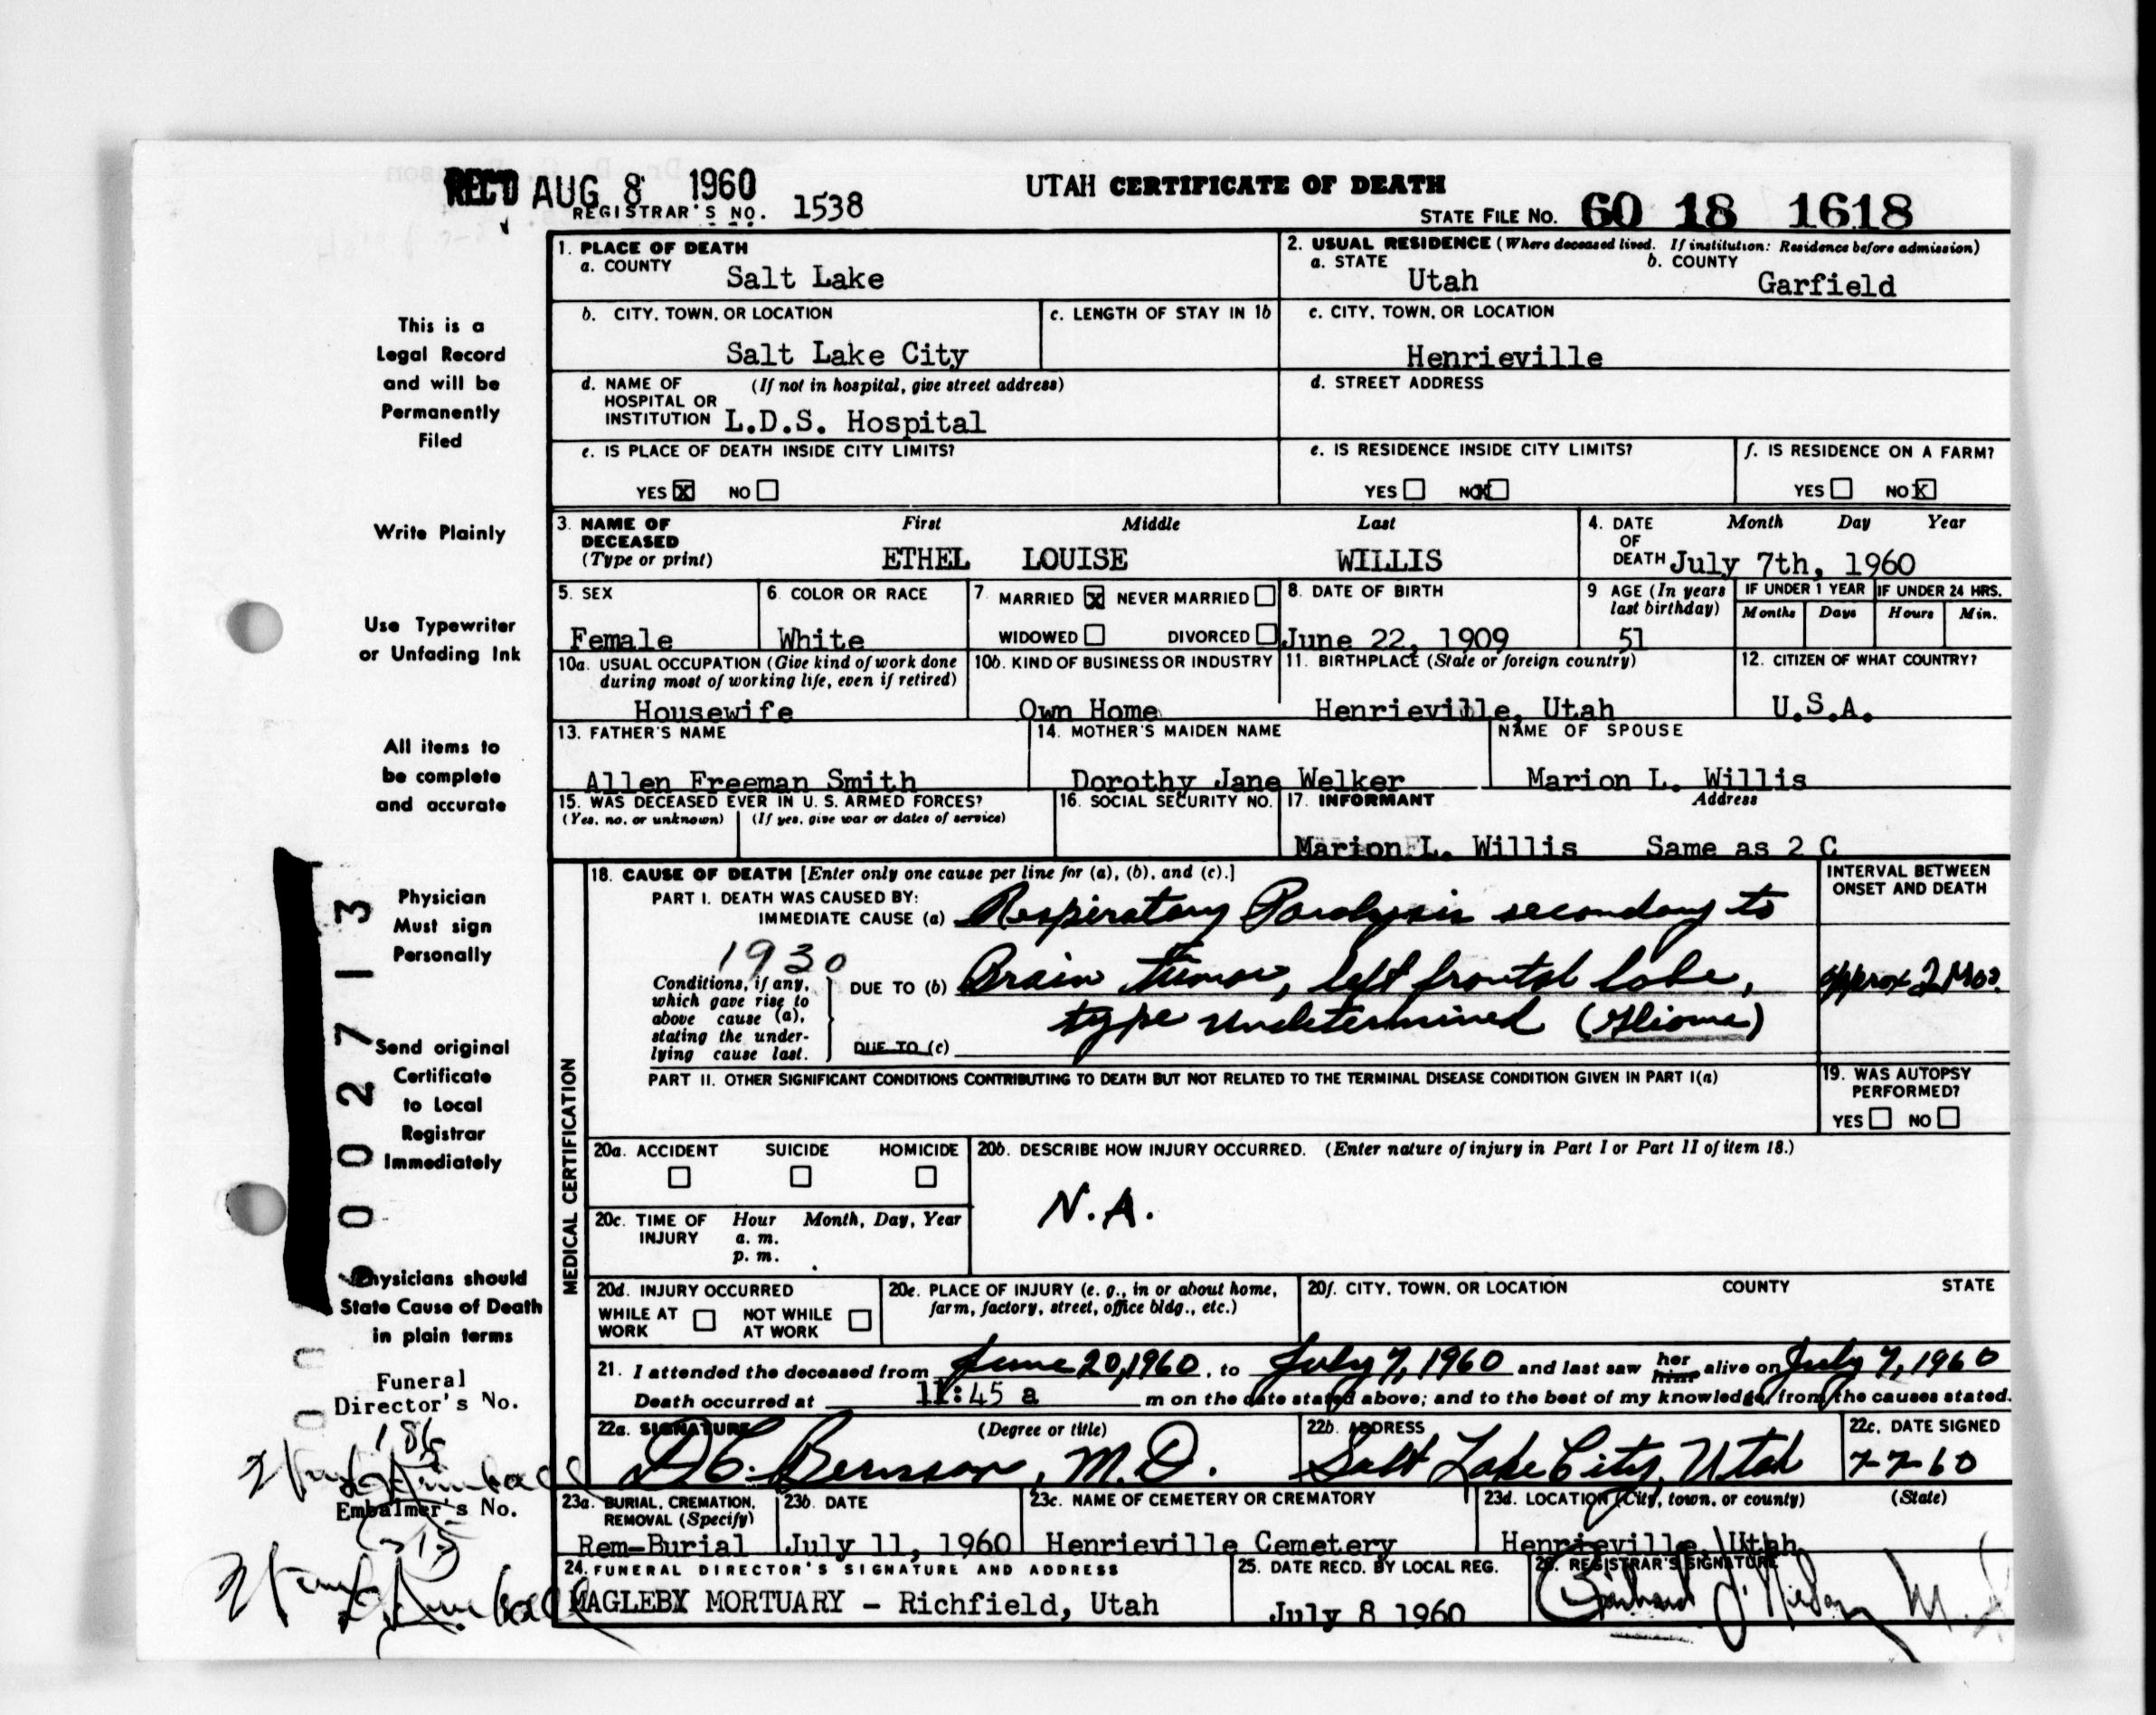 REC'D AUG 8 1960
REGISTRAR'S NO. 1538
UTAH CERTIFICATE OF DEATH
STATE FILE NO. 60 18 1618
This is a
Legal Record
and will be
Permanently
Filed
Write Plainly
Use Typewriter
or Unfading Ink
All items to
be complete
and accurate
Physician
Must sign
Personally
Send original
Certificate
to Local
Registrar
Immediately
Physicians should
State Cause of Death
in plain terms
Funeral
Director's No.
186
Embalmer's No.
002713
1. PLACE OF DEATH
a. COUNTY
Salt Lake
2. USUAL RESIDENCE (Where deceased lived. If institution: Residence before admission)
a. STATE b. COUNTY
Utah Garfield
b. CITY, TOWN, OR LOCATION
Salt Lake City
c. LENGTH OF STAY IN 1b
c. CITY, TOWN, OR LOCATION
Henrieville
d. NAME OF (If not in hospital, give street address)
HOSPITAL OR
INSTITUTION L.D.S. Hospital
d. STREET ADDRESS
e. IS PLACE OF DEATH INSIDE CITY LIMITS?
YES X NO
e. IS RESIDENCE INSIDE CITY LIMITS?
YES NO X
f. IS RESIDENCE ON A FARM?
YES NO X
3. NAME OF First Middle Last
DECEASED
(Type or print) ETHEL LOUISE WILLIS
4. DATE Month Day Year
OF
DEATH July 7th, 1960
5. SEX
Female
6. COLOR OR RACE
White
7. MARRIED X NEVER MARRIED
WIDOWED DIVORCED
8. DATE OF BIRTH
June 22, 1909
9 AGE (In years
last birthday)
51
IF UNDER 1 YEAR IF UNDER 24 HRS.
Months Days Hours Min.
10a. USUAL OCCUPATION (Give kind of work done
during most of working life, even if retired)
Housewife
10b. KIND OF BUSINESS OR INDUSTRY
Own Home
11. BIRTHPLACE (State or foreign country)
Henrieville, Utah
12. CITIZEN OF WHAT COUNTRY?
U.S.A.
13. FATHER'S NAME
Allen Freeman Smith
14. MOTHER'S MAIDEN NAME
Dorothy Jane Welker
NAME OF SPOUSE
Marion L. Willis
15. WAS DECEASED EVER IN U. S. ARMED FORCES?
(Yes, no, or unknown) (If yes, give war or dates of service)
16. SOCIAL SECURITY NO.
17. INFORMANT Address
Marion L. Willis Same as 2 C
MEDICAL CERTIFICATION
18. CAUSE OF DEATH [Enter only one cause per line for (a), (b), and (c).]
PART I. DEATH WAS CAUSED BY:
IMMEDIATE CAUSE (a) Respiratory Paralysis secondary to
1930
Conditions, if any,
which gave rise to
above cause (a),
stating the under-
lying cause last.
DUE TO (b) Brain tumor, left frontal lobe,
type undetermined (Glioma)
DUE TO (c)
INTERVAL BETWEEN
ONSET AND DEATH
approx 2 Mos.
PART II. OTHER SIGNIFICANT CONDITIONS CONTRIBUTING TO DEATH BUT NOT RELATED TO THE TERMINAL DISEASE CONDITION GIVEN IN PART I(a)
19. WAS AUTOPSY
PERFORMED?
YES NO
20a. ACCIDENT SUICIDE HOMICIDE
20b. DESCRIBE HOW INJURY OCCURRED. (Enter nature of injury in Part I or Part II of item 18.)
N.A.
20c. TIME OF Hour Month, Day, Year
INJURY a. m.
p. m.
20d. INJURY OCCURRED
WHILE AT NOT WHILE
WORK AT WORK
20e. PLACE OF INJURY (e. g., in or about home,
farm, factory, street, office bldg., etc.)
20f. CITY, TOWN, OR LOCATION COUNTY STATE
21. I attended the deceased from June 20, 1960, to July 7, 1960 and last saw her him alive on July 7, 1960
Death occurred at 11:45 a m on the date stated above; and to the best of my knowledge, from the causes stated.
22a. SIGNATURE (Degree or title)
D C. Bernson, M.D.
22b. ADDRESS
Salt Lake City, Utah
22c. DATE SIGNED
7-7-60
23a. BURIAL, CREMATION,
REMOVAL (Specify)
Rem-Burial
23b. DATE
July 11, 1960
23c. NAME OF CEMETERY OR CREMATORY
Henrieville Cemetery
23d. LOCATION (City, town, or county) (State)
Henrieville, Utah
24. FUNERAL DIRECTOR'S SIGNATURE AND ADDRESS
MAGLEBY MORTUARY - Richfield, Utah
25. DATE RECD. BY LOCAL REG.
July 8 1960
26. REGISTRAR'S SIGNATURE